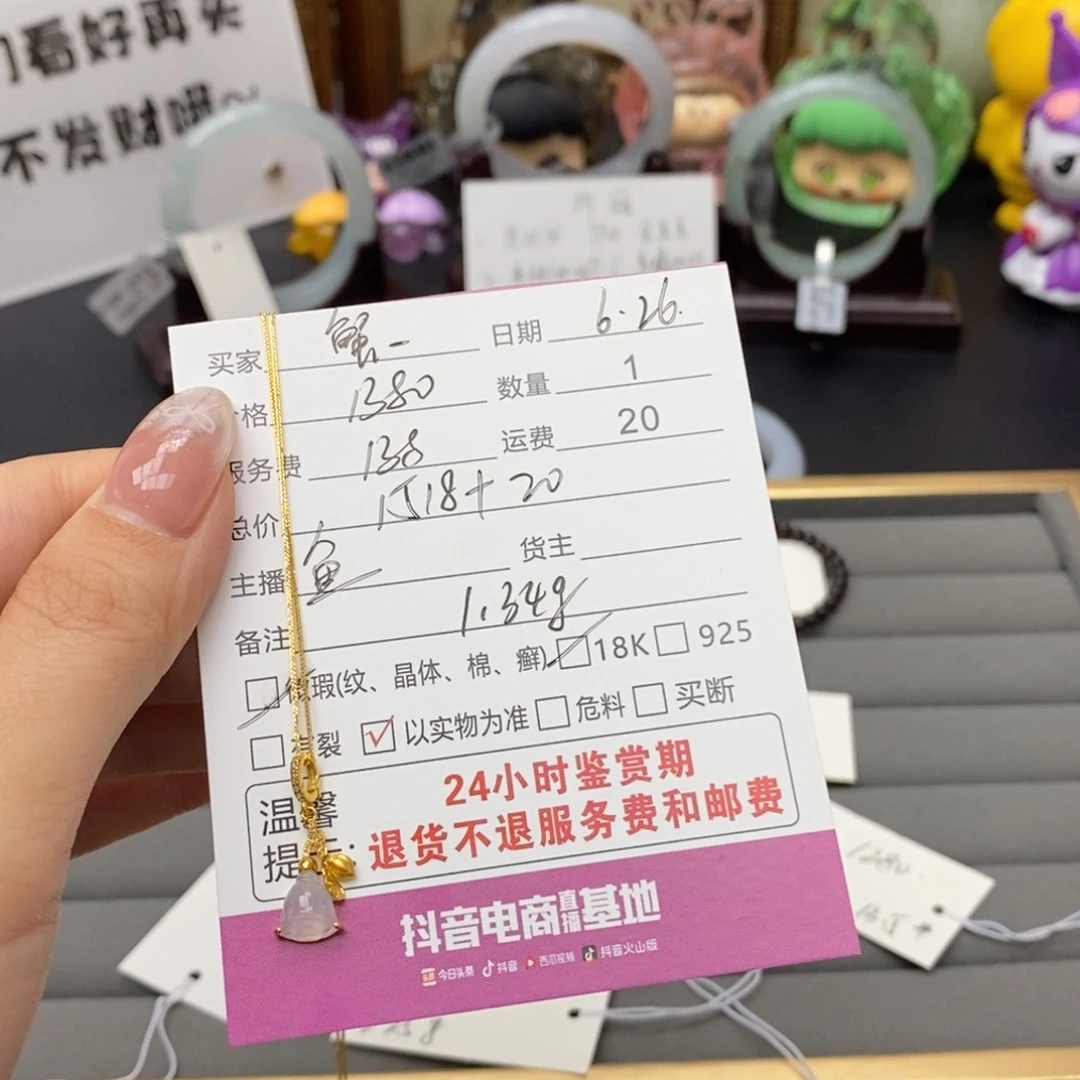 们看好再买
不发财哦~
买家 蟹一 日期 6.26.
价格 1380 数量 1
服务费 138 运费 20
总价 1518+20
主播 鱼 货主
备注 1.34g
微瑕(纹、晶体、棉、癣) 18K 925
有裂 以实物为准 危料 买断
温馨提示:
24小时鉴赏期
退货不退服务费和邮费
抖音电商直播基地
头条 今日头条 抖音 西瓜视频 抖音火山版
1280.